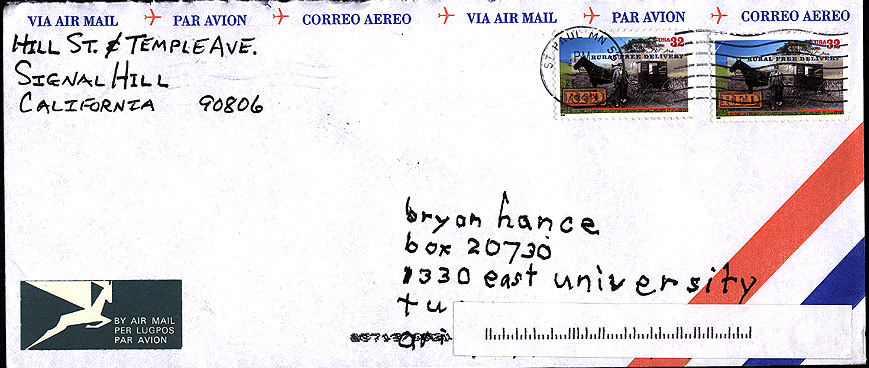 VIA AIR MAIL PAR AVION CORREO AEREO VIA AIR MAIL PAR AVION CORREO AEREO
HILL ST. & TEMPLE AVE.
SIGNAL HILL
CALIFORNIA 90806
ST. PAUL MN
USA 32
RURAL FREE DELIVERY
RFD
USA 32
RURAL FREE DELIVERY
RFD
bryan hance
box 20730
1330 east university
tu
ari
BY AIR MAIL
PER LUGPOS
PAR AVION